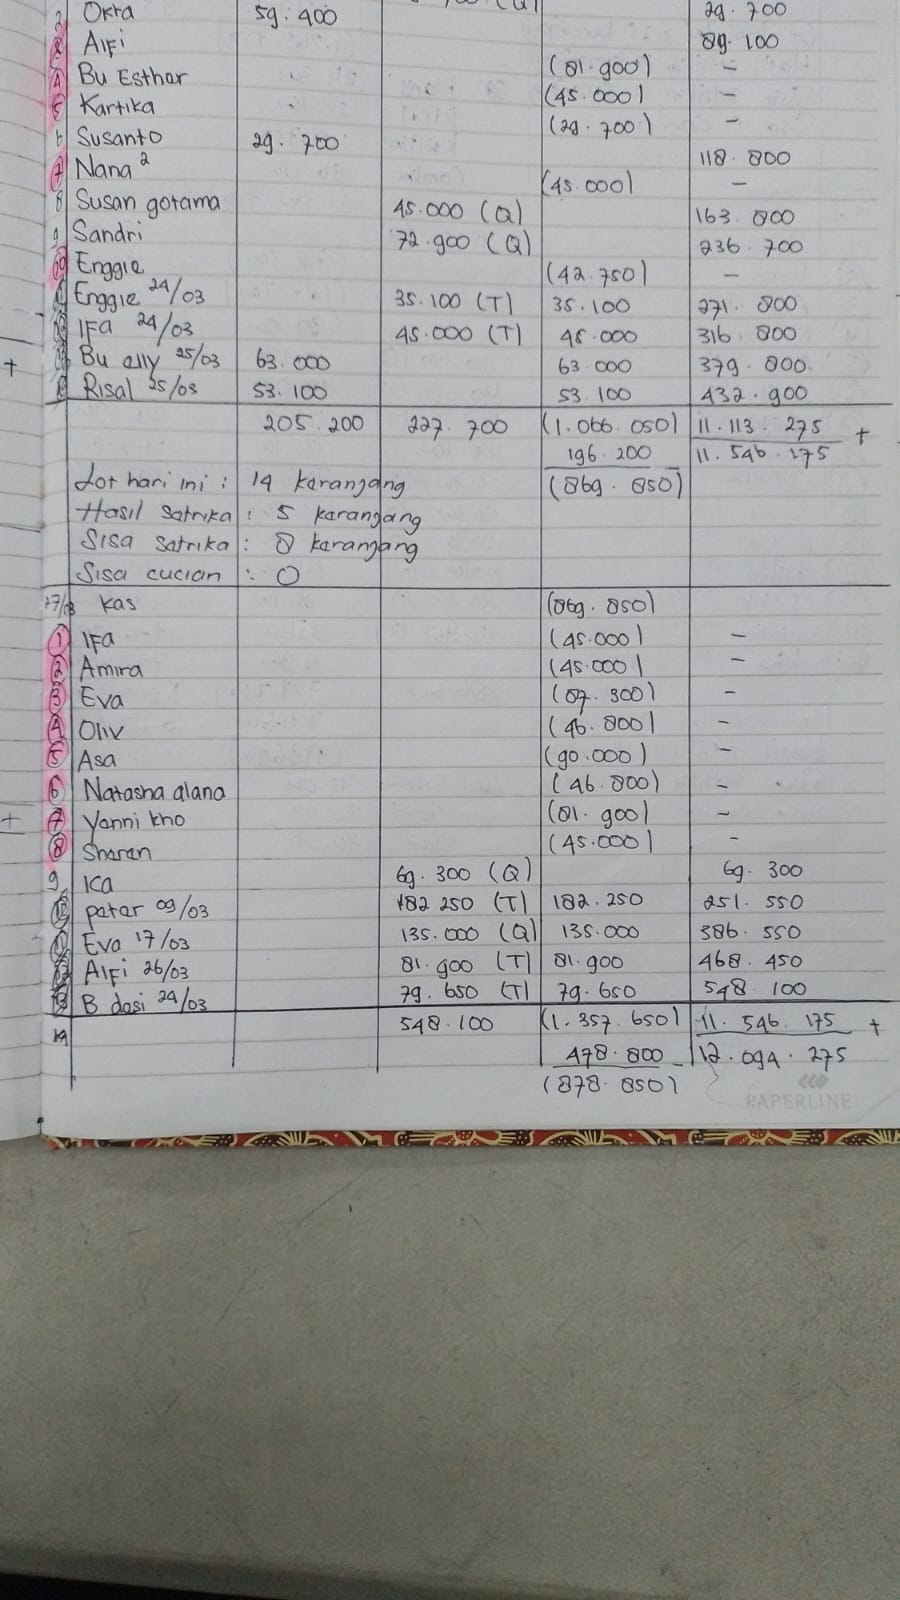 2 Okta 59.400 29.700
3 Alfi 89.100
4 Bu Esthar (81.900) -
5 Kartika (45.000) -
6 Susanto 29.700 (29.700) -
7 Nana 2 118.800
8 Susan gotama 45.000 (Q) (45.000) -
9 Sandri 72.900 (Q) 163.800
10 Enggie 236.700
Enggie 24/03 35.100 (T) (42.750) -
IFa 24/03 45.000 (T) 35.100 271.800
45.000 316.800
+ Bu ally 25/03 63.000 63.000 379.800
Risal 25/03 53.100 53.100 432.900
205.200 227.700 (1.066.050) 11.113.275 +
196.200 - 11.546.175
Lot hari ini : 14 keranjang (869.850)
Hasil satrika : 5 karangang
Sisa satrika : 8 karangang
Sisa cucian : 0
27/03 kas (869.850)
1 IFa (45.000) -
2 Amira (45.000) -
3 Eva (87.300) -
4 Oliv (46.800) -
5 Asa (90.000) -
6 Natasha alana (46.800) -
+ 7 Yanni kho (81.900) -
8 Sharan (45.000) -
9 Ica 69.300 (Q) 69.300
10 patar 09/03 182.250 (T) 182.250 251.550
11 Eva 17/03 135.000 (Q) 135.000 386.550
12 Alfi 26/03 81.900 (T) 81.900 468.450
13 B dasi 24/03 79.650 (T) 79.650 548.100
14 548.100 (1.357.650) 11.546.175 +
478.800 - 12.094.275
(878.850)
PAPERLINE